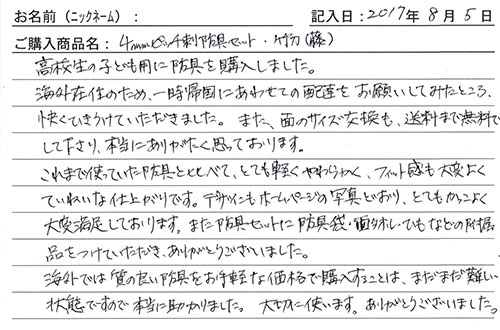 お名前（ニックネーム）： 記入日：2017年 8月 5日
ご購入商品名：4mmピッチ刺防具セット・竹刀(藤)
高校生の子ども用に防具を購入しました。
海外在住のため、一時帰国にあわせての配達をお願いしてみたところ、
快くひきうけていただきました。また、面のサイズ交換も、送料まで無料で
して下さり、本当にありがたく思っております。
これまで使っていた防具とくらべて、とても軽くやわらかく、フィット感も大変よく
ていねいな仕上がりです。デザインもホームページの写真どおり、とてもかっこよく
大変満足しております。また防具セットに防具袋・面タオル・ひもなどの附属
品をつけていただき、ありがとうございました。
海外では質の良い防具をお手軽な価格で購入することは、まだまだ難しい
状態ですので本当に助かりました。大切に使います。ありがとうございました。